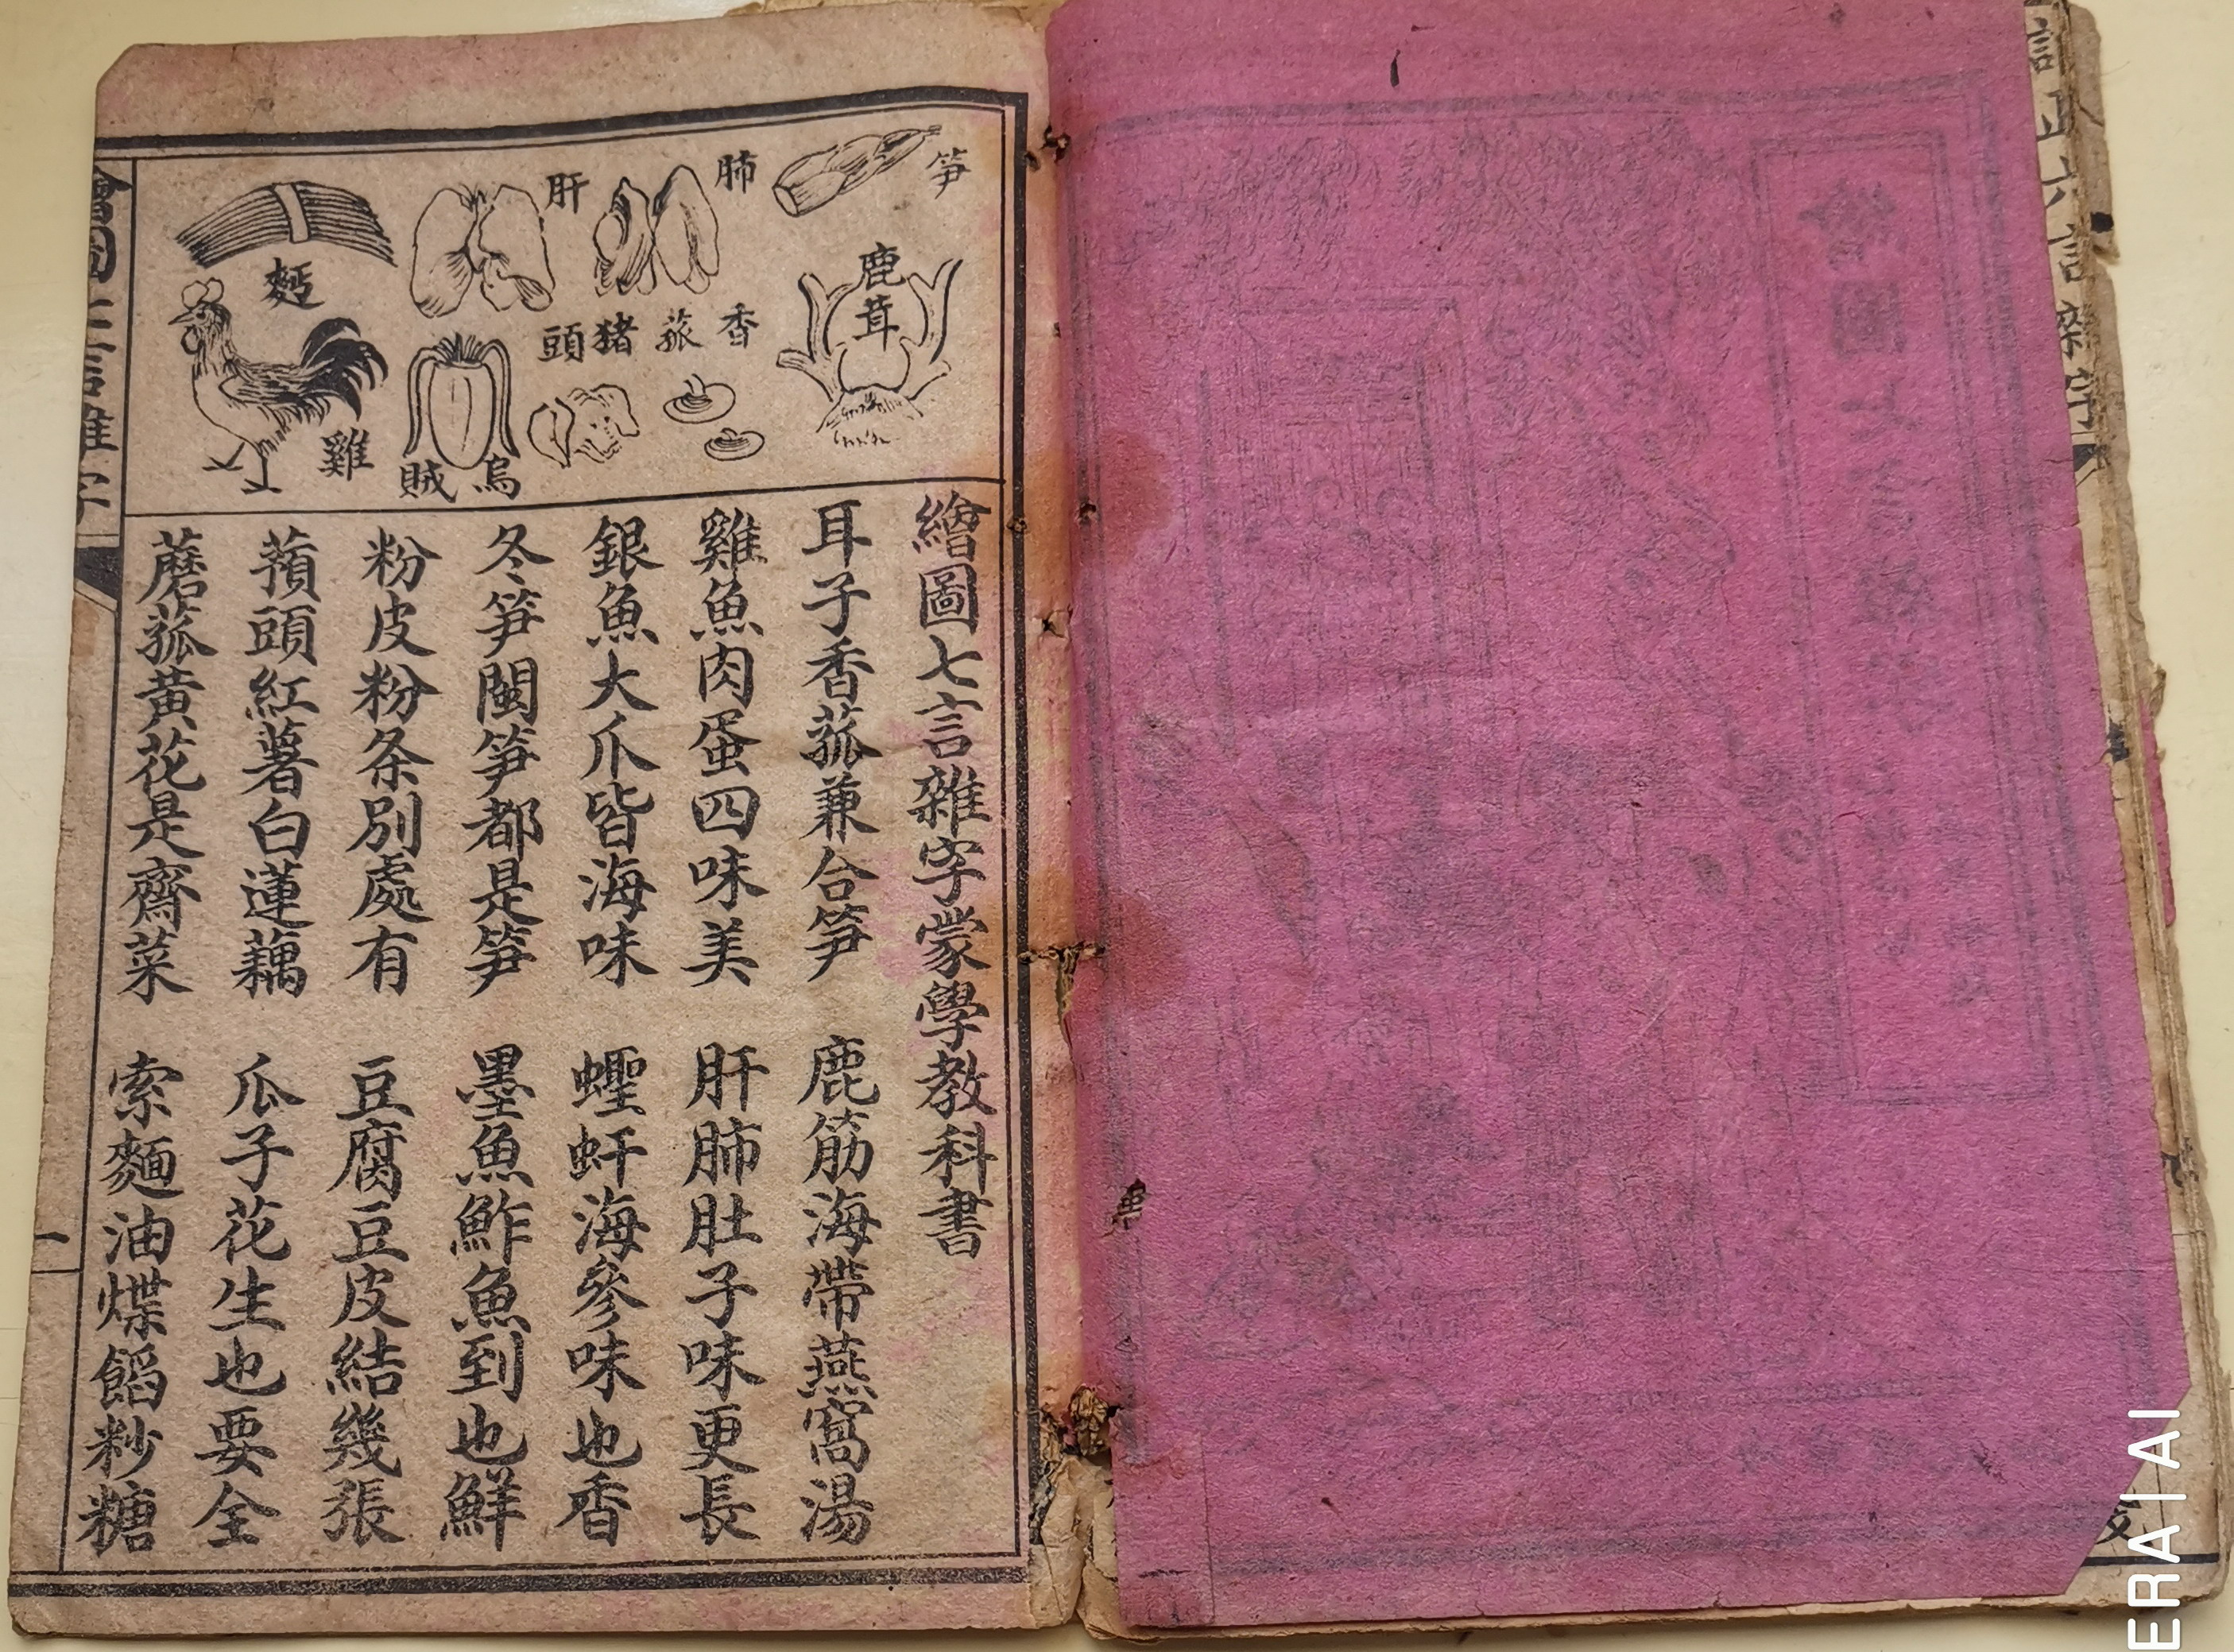 笋
肺
肝
鹿茸
香菰
猪頭
麪
雞
烏賊
繪圖七言雜字蒙學教科書
耳子香菰兼合笋 鹿筋海帶燕窩湯
雞魚肉蛋四味美 肝肺肚子味更長
銀魚大爪皆海味 蟶蚶海參味也香
冬笋閩笋都是笋 墨魚鮓魚到也鮮
粉皮粉条別處有 豆腐豆皮結幾張
蕷頭紅薯白蓮藕 瓜子花生也要全
蘑菰黃花是齋菜 索麵油煠餡粆糖
繪圖七言雜字
一
六言雜字
ERA | AI